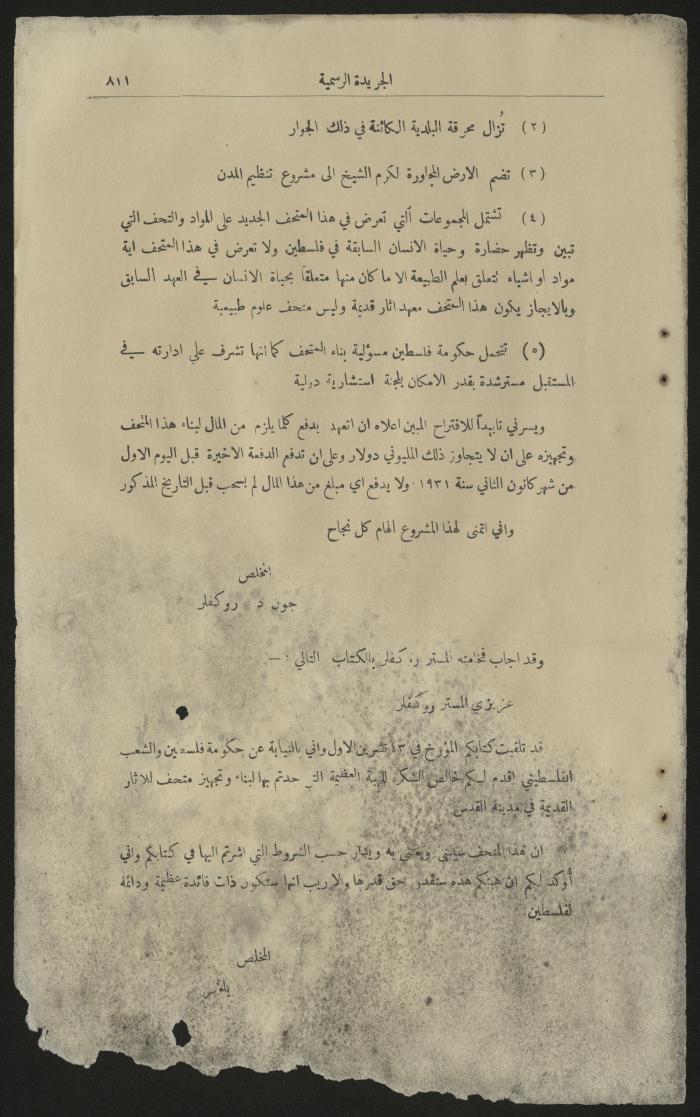 الجريدة الرسمية ٨١١
(٢) تُزال محرقة البلدية الكائنة في ذلك الجوار
(٣) تضم الارض المجاورة لكرم الشيخ الى مشروع تنظيم المدن
(٤) تشتمل المجموعات التي تعرض في هذا المتحف الجديد على المواد والتحف التي
تبين وتظهر حضارة وحياة الانسان السابقة في فلسطين ولا تعرض في هذا المتحف اية
مواد او اشياء تتعلق بعلم الطبيعة الا ما كان منها متعلقاً بحياة الانسان في العهد السابق
وبالايجاز يكون هذا المتحف معهد اثار قديمة وليس متحف علوم طبيعية
(٥) تتحمل حكومة فلسطين مسؤلية بناء المتحف كما انها تشرف على ادارته في
المستقبل مسترشدة بقدر الامكان بلجنة استشارية دولية
ويسرني تاييداً للاقتراح المبين اعلاه ان اتعهد بدفع كلما يلزم من المال لبناء هذا المتحف
وتجهيزه على ان لا يتجاوز ذلك المليوني دولار وعلى ان تدفع الدفعة الاخيرة قبل اليوم الاول
من شهر كانون الثاني سنة ١٩٣١ ولا يدفع اي مبلغ من هذا المال لم يسحب قبل التاريخ المذكور
واني اتمنى لهذا المشروع الهام كل نجاح
المخلص
جون د روكفلر
وقد اجاب فخامته المستر روكفلر بالكتاب التالي : —
عزيزي المستر روكفلر
قد تلقيت كتابكم المؤرخ في ١٣ تشرين الاول واني بالنيابة عن حكومة فلسطين والشعب
الفلسطيني اقدم لكم خالص الشكر للهبة العظيمة التي جدتم بها لبناء وتجهيز متحف للاثار
القديمة في مدينة القدس
ان هذا المتحف سيبنى ويعتنى به ويدار حسب الشروط التي اشرتم اليها في كتابكم واني
أوكد لكم ان هبتكم هذه ستقدر حق قدرها ولا ريب انها ستكون ذات فائدة عظيمة ودائمة
لفلسطين
المخلص
بلومر